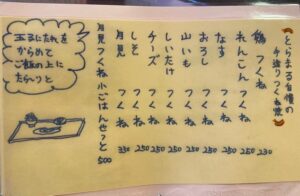 とらまる自慢の
手造りつくね焼
鶏つくね 230
れんこんつくね 250
なすつくね 250
おろしつくね 250
山いもつくね 250
しいたけつくね 250
チーズつくね 250
しそつくね 250
月見つくね 330
月見つくね小ごはんせっと 500
玉子にたれを
からめて
ご飯の上に
たら〜りっと